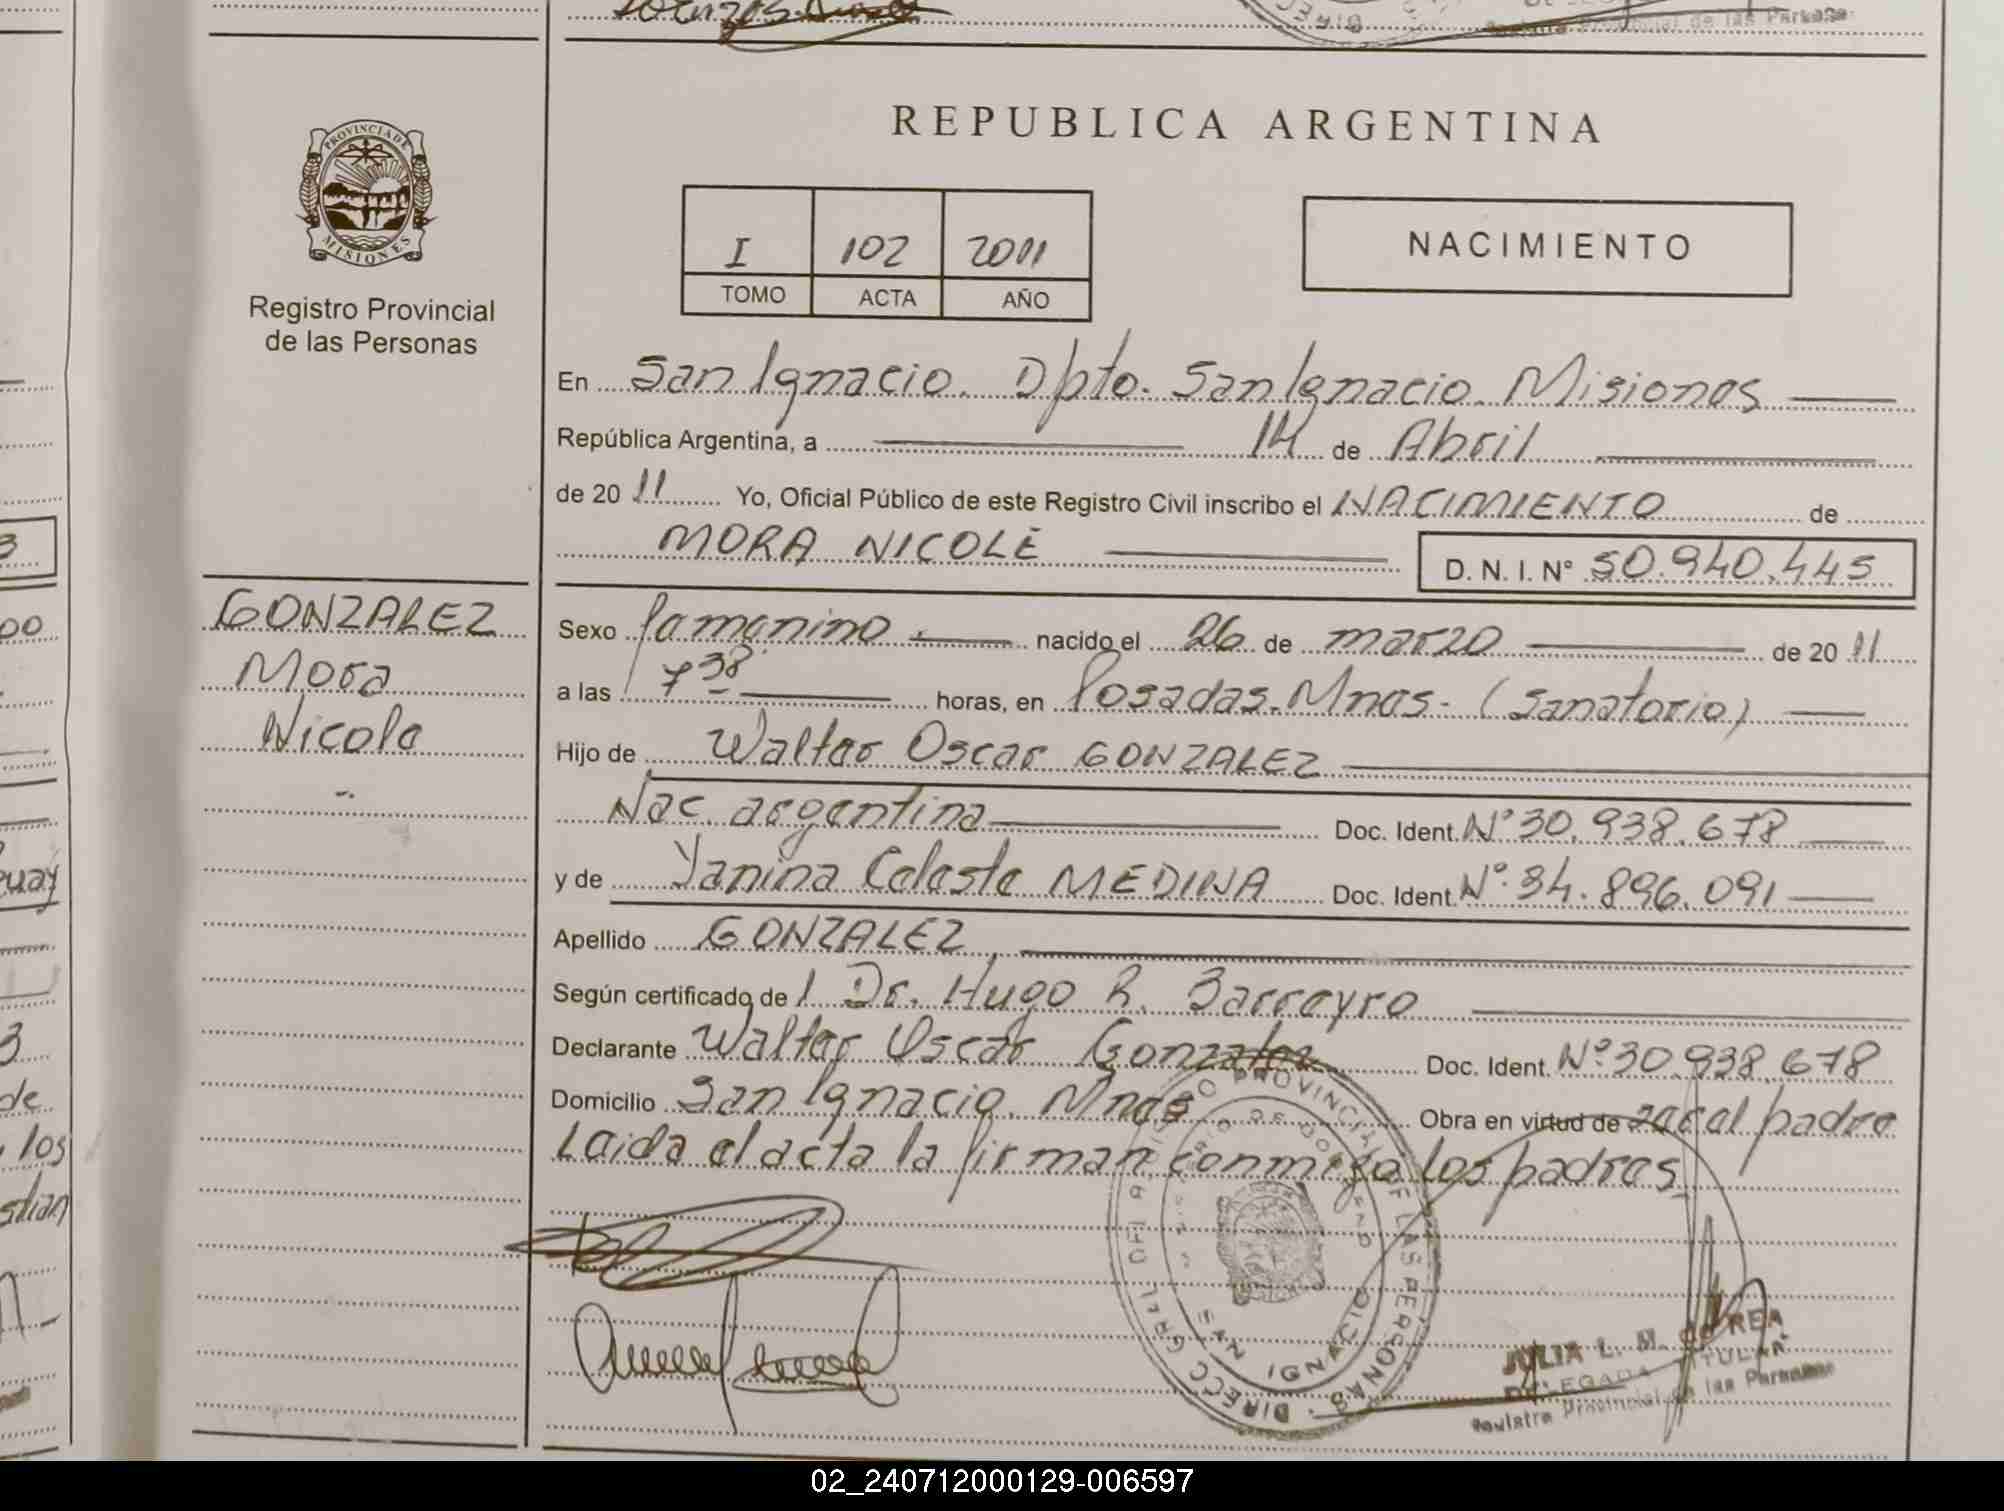 REPUBLICA ARGENTINA
PROVINCIA DE
MISIONES
Registro Provincial
de las Personas
I 102 2011
TOMO ACTA AÑO
NACIMIENTO
En San Ignacio. Dpto. San Ignacio. Misiones
República Argentina, a 14 de Abril
de 20 11 Yo, Oficial Público de este Registro Civil inscribo el NACIMIENTO de
MORA NICOLE
D. N. I. Nº 50.940.445
GONZALEZ
Mora
Nicole
Sexo femenino. nacido el 26 de marzo de 20 11
a las 7 38 horas, en Posadas. Mnes. (Sanatorio)
Hijo de Walter Oscar GONZALEZ
Nac. argentina Doc. Ident. Nº 30.938.678
y de Yanina Celeste MEDINA Doc. Ident. Nº. 34.896.091
Apellido GONZALEZ
Según certificado de 1 Dr. Hugo R. Barreyro
Declarante Walter Oscar Gonzalez Doc. Ident. Nº. 30.938.678
Domicilio San Ignacio. Mnes Obra en virtud de ser el padre
Leida el acta la firman conmigo los padres
DIRECC GRAL PROVINCIAL DE LAS PERSONAS
SAN IGNACIO
JULIA L. M. CORREA
DELEGADA TITULAR
Registro Provincial de las Personas
02_240712000129-006597